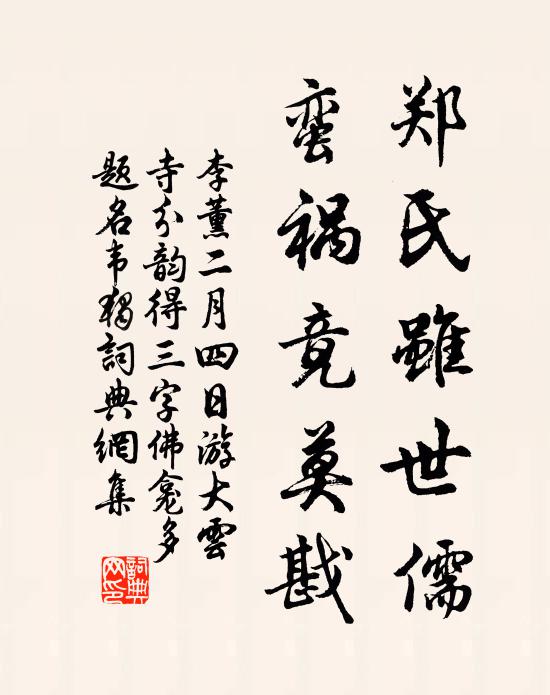 郑氏雖世儒
蛮祸竟莫戡
李薰二月四日游大雲
寺分韵得三字佛龛多
題名韦獨詞典網集
詞典
网印